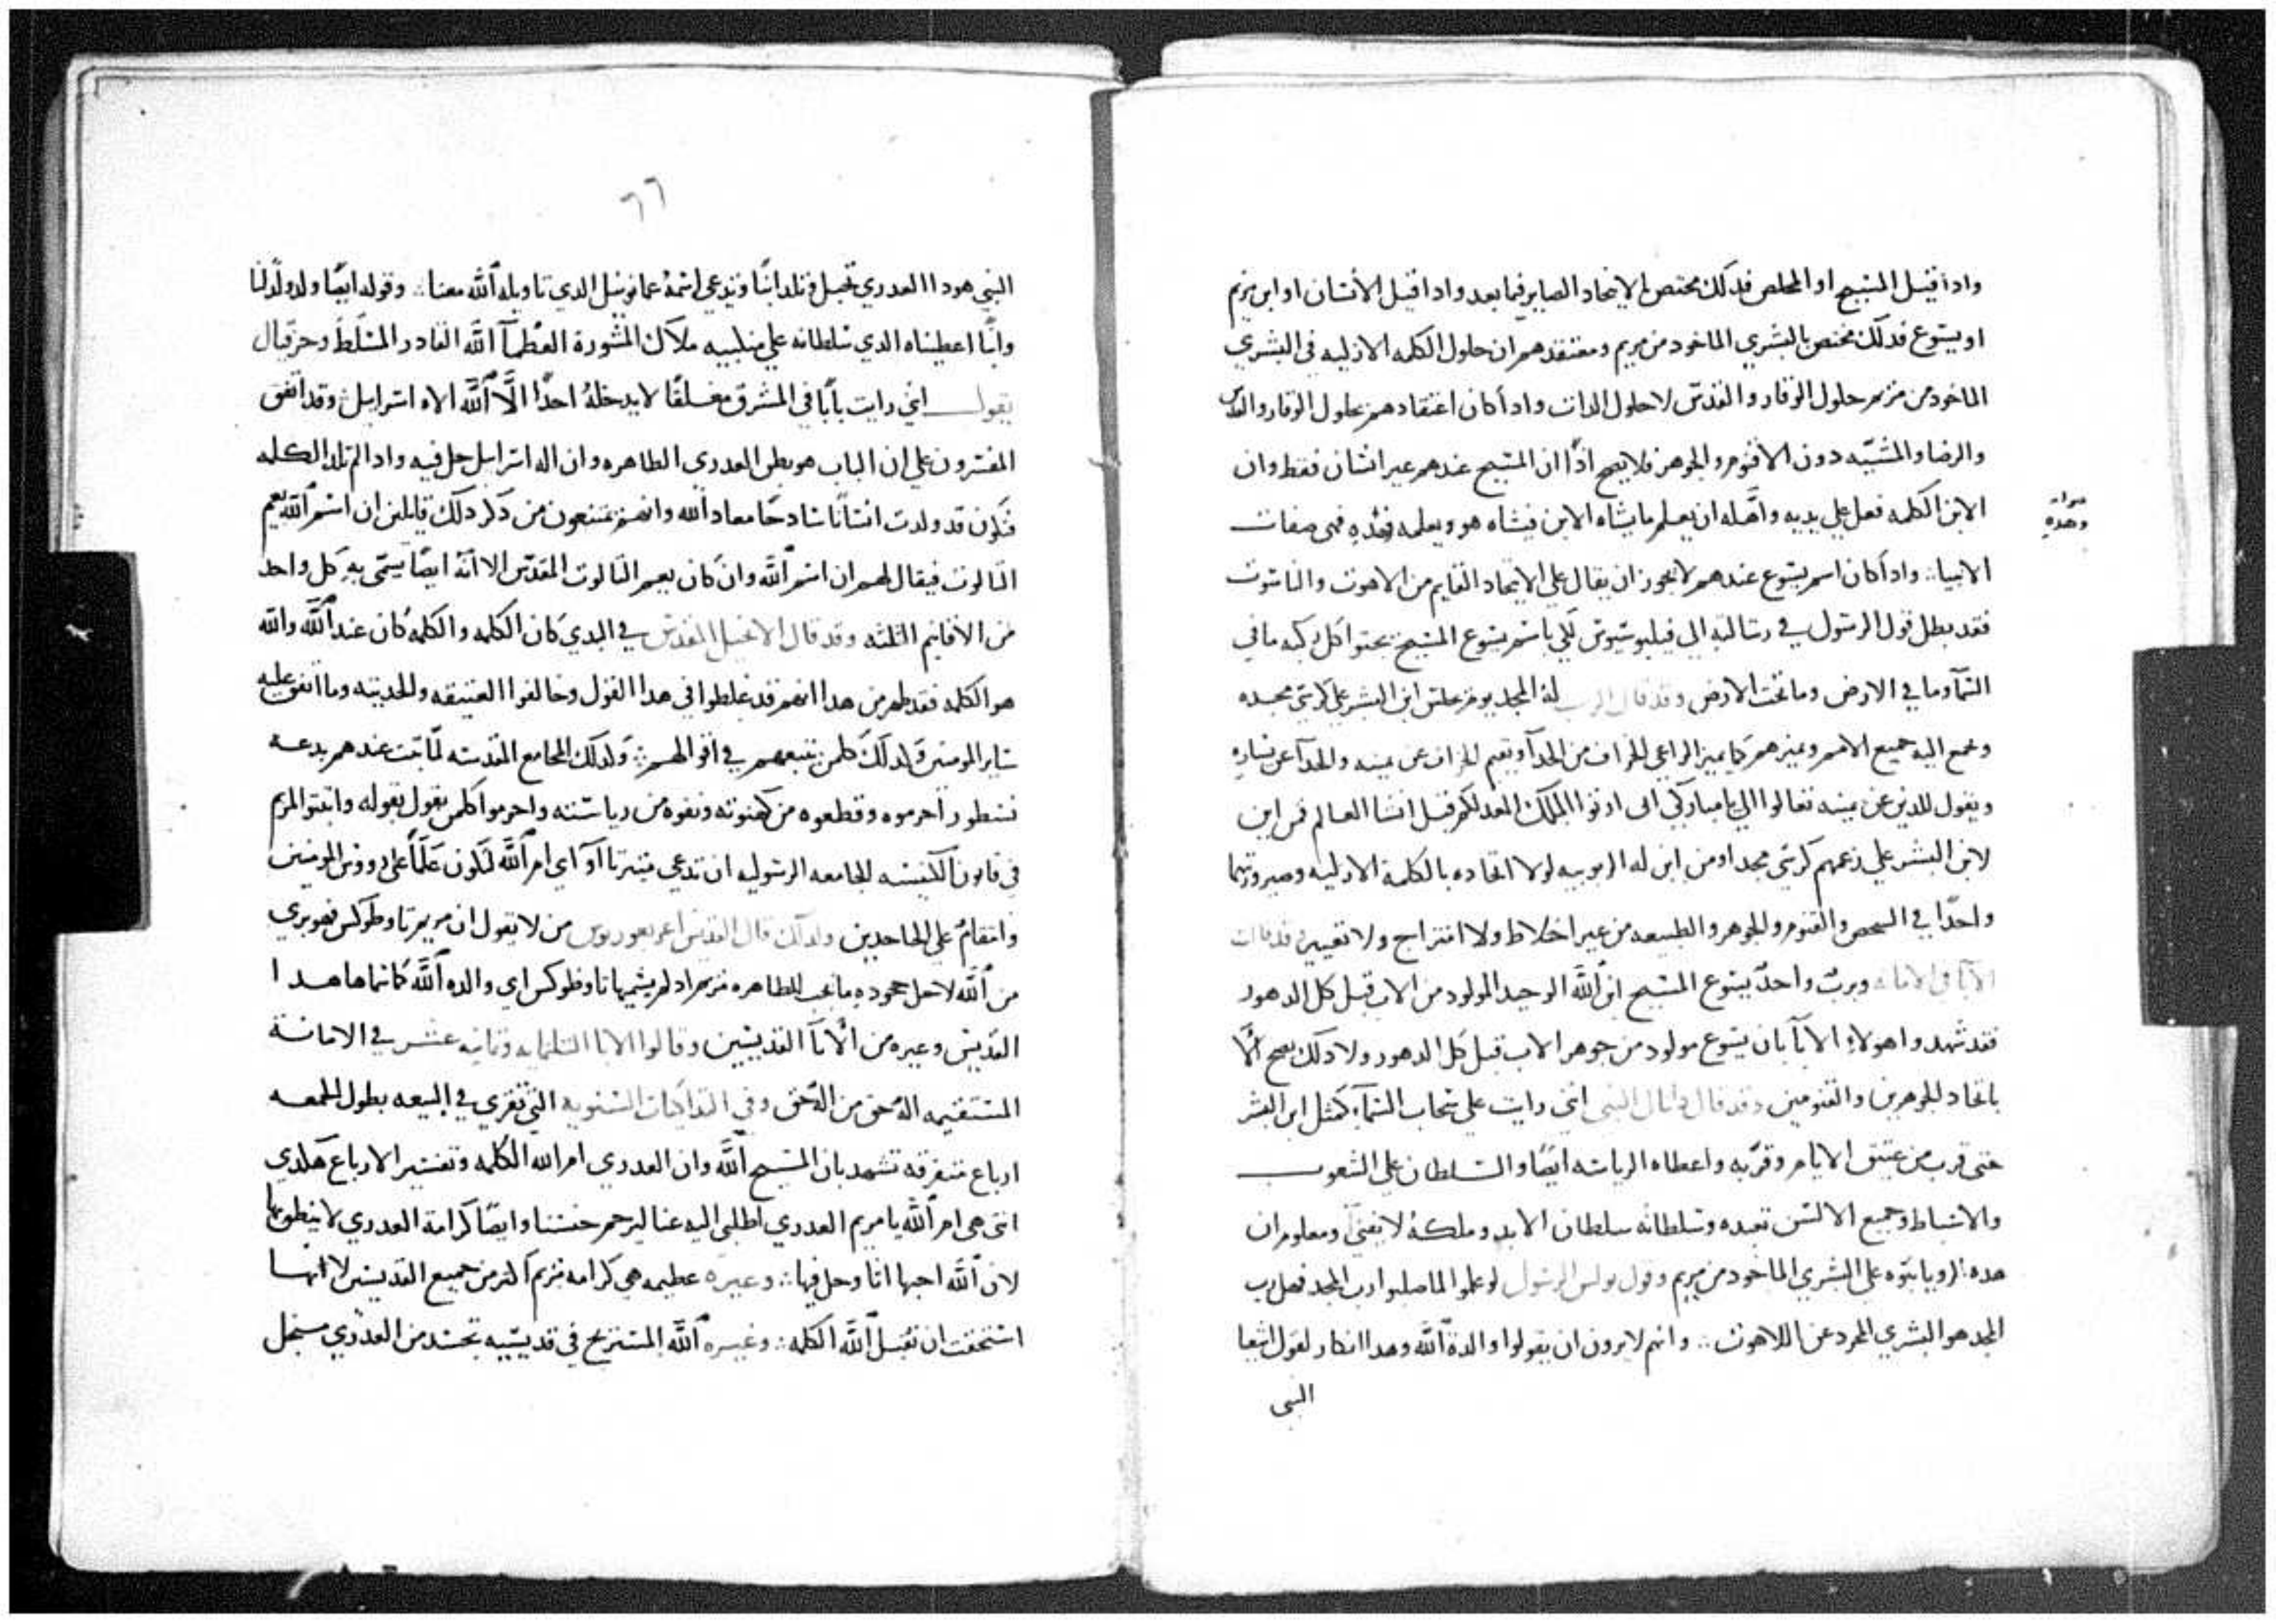 وادا قيل المسيح او المخلص فدلك مختص بالاتحاد الصاير فيما بعد وادا قيل الانسان او ابن مريم
او يسوع فدلك مختص بالبشري الماخود من مريم ومعتقدهم ان حلول الكلمه الازليه في البشري
الماخود من مريم حلول الوقار والقدس لا حلول الدات وادا كان اعتقادهم بحلول الوقار والقدس
والرضا والمشيّه دون الاقنوم والجوهر فلا يصح ادًا ان المسيح عندهم غير انسان فقط وان
الابن الكلمه فعل علي يديه واهّله ان يعلم ما يشاه الابن فيشاه هو ويعلمه فهي صفات
وهده
الانبيا وادا كان اسم يسوع عندهم لا يجوز ان يقال علي الاتحاد القايم من الاهوت والناسوت
فقد بطل قول الرسول في رسالته الي فيلبوسيوس لكي باسم يسوع المسيح يجتوا كل ركبه ما في
السّمآ وما في الارض وما تحت الارض وقد قال الرب له المجد يومن يجلس ابن البشر علي كرسي مجده
وتجمع اليه جميع الامم ويميزهم كما يميز الراعي الخراف من الجدآ ويقيم الخراف عن يمينه والجدآ عن يساره
ويقول للدين عن يمينه تعالوا الي يا مباركي ابي ارتوا الملك المعد لكم قبل انشا العالم فمن اين
لابن البشر علي زعمهم كرسي مجد او من اين له الربوبيه لولا اتحاده بالكلمة الازليه وصيرورتهما
واحدًا في الشخص والقنوم والجوهر والطبيعه من غير اختلاط ولا امتزاج ولا تغيير قد قالت
الابا في الامانه وبربٍ واحدٍ يسوع المسيح ابن اللّه الوحيد المولود من الاب قبل كل الدهور
فقد شهدوا هولاءِ الابآ بان يسوع مولود من جوهر الاب قبل كل الدهور ولا دلك يصح الّا
باتحاد الجوهرين والقنومين وقد قال دانيال النبي انني رايت علي سحاب السّمآ كمثل ابن البشر
حتي قرب من عتيق الايام وقرّبه واعطاه الرياسه ايضًا والسلطان علي الشعوب
والاسباط وجميع الالسن تعبده وسلطانه سلطان الابد وملكهُ لا يفنيّ ومعلوم ان
هده الرويا بنوّه علي البشري الماخود من مريم وقول بولس الرسول لو علموا لما صلبوا رب المجد فهل رب
المجد هو البشري المجرد عن اللاهوت وانهم لا يرون ان يقولوا والدة اللّه وهدا انكار لقول اشعيا
النبي
٦٦
النبي هودا العدري تحبل وتلد ابنًا ويدعي اسمهُ عمانوييل الدي تاويله اللّه معنا وقوله ايضًا ولد ولدًا لنا
وابنًا اعطيناه الدي سلطانه علي منكبيه ملاك المشورة العظمآ اللّه القادر المسلط وحزقيال
يقول اني رايت بابًا في المشرق مغلقًا لا يدخلهُ احدًا الّا اللّه الاه اسراييل وقد اتفق
المفسرون علي ان الباب هو بطن العدري الطاهره وان اله اسراييل حل فيه وادا لم تلد الكلمه
فتكون قد ولدت انسانًا سادجًا معاد اللّه وانهم يمتنعون من دكر دلك قايلين ان اسم اللّه يعم
التالوت فيقال لهم ان اسم اللّه وان كان يعم التالوت المقدّس الا انّه ايضًا يسمّي بهِ كل واحد
من الاقانيم الثلثه وقد قال الانجيل المقدس في البدي كان الكلمه والكلمهُ كان عند اللّه واللّه
هو الكلمه فقد ظهر من هدا انهم قد غلطوا في هدا القول وخالفوا العتيقه والحديثه وما اتفق عليه
ساير المومنين وكدلك كلمن تبعهم في اقوالهم ولدلك المجامع المقدسه لمّا تبت عندهم بدعه
نسطور احرموه وقطعوه من كهنوته ونفوه من رياسته واحرموا كلمن يقول بقوله واتبتوا لمريم
في قانون الكنيسه الجامعه الرسوليه ان تدعي اي ام اللّه لتكون علمًا علي رووس المومنين
وانتقامٌ علي الجاحدين ولدلك قال القديس اغريغوريوس من لا يقول ان مريم تاوطوكس فهو بري
من اللّه لاجل جحوده ما يجب للطاهره مريم اد لم يسميها تاوطوكس اي والده اللّه كانما هدا
القديس وغيره من الابآ القديسين وقالوا الابا التلتمايه وتمانيه عشر في الامانة
المستقيمه اله حق من اله حق وفي التداكيات السنويه التي تقري في البيعه بطول الجمعه
ارباع متفرقه تشهد بان المسيح اللّه وان العدري ام اللّه الكلمه وتفسير الارباع هكدي
انتي هي ام اللّه يا مريم العدري اطلبي اليه عنا ليرحم جنسنا وايضًا كرامة العدري لا ينطق بها
لان اللّه احبها اتا وحل فيها وغيره عظيمه هي كرامه مريم اكتر من جميع القديسين لانها
استحقت ان تقبل اللّه الكلمه وغيره اللّه المستريح في قديسيه تجسد من العدري من اجل